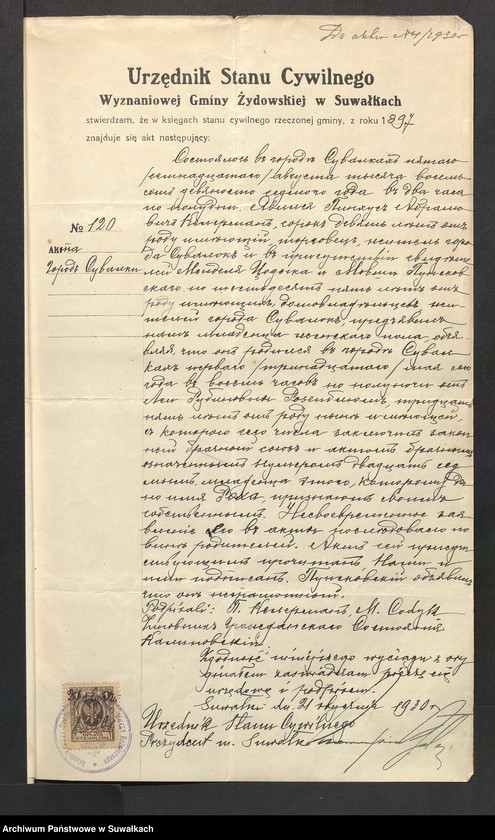 Do aktu № 4/1930r
Urzędnik Stanu Cywilnego
Wyznaniowej Gminy Żydowskiej w Suwałkach
stwierdzam, że w księgach stanu cywilnego rzeczonej gminy, z roku 1897
znajduje się akt następujący:
№ 120
Akta
Городъ Сувалки
Состоялось въ городѣ Сувалкахъ пятаго
/семнадцатаго/ августа тысяча восемь
сотъ девяносто седьмого года въ два часа
по полудни. Явился Пинхусъ Абрамо
вичъ Кемерманъ, сорока девяти лѣтъ отъ
роду имѣющій, торговецъ, житель горо
да Сувалокъ и въ присутствіи свидѣте
лей Менделя Цодыка и Мовши Пунсков
скаго, по шестидесяти пяти лѣтъ отъ
роду имѣющихъ, домовладѣльцевъ, жи
телей города Сувалокъ, предъявилъ
намъ младенца женскаго пола, объя
вляя, что онъ родился въ городѣ Сувал
кахъ перваго /тринадцатаго/ мая сего
года въ восемь часовъ по полуночи отъ
Леи Рубиновны Розенталь, тридцати
пяти лѣтъ отъ роду нынѣ имѣющей,
съ которою сего числа заключилъ закон
ный брачный союзъ и актомъ брачнымъ
означеннымъ нумеромъ двадцать седь
мымъ, младенца этого, которому да
но имя Роха, признаетъ своимъ
собственнымъ. Несвоевременное зая
вленіе его въ акты послѣдовало по
винѣ родителей. Актъ сей присут
ствующимъ прочитанъ, Нами и
ими подписанъ. Пунсковскій объявилъ
что онъ неграмотный.
Podpisali: П. Кемерманъ, М. Codyk
Чиновникъ Гражданскаго Состоянія
Калиновскій.
Zgodność niniejszego wyciągu z ory
ginałem zaświadczam pieczęcią
urzędową i podpisem.
Suwałki dn. 21 stycznia 1930 r.
Urzędnik Stanu Cywilnego
Prezydent m. Suwałk
Archiwum Państwowe w Suwałkach